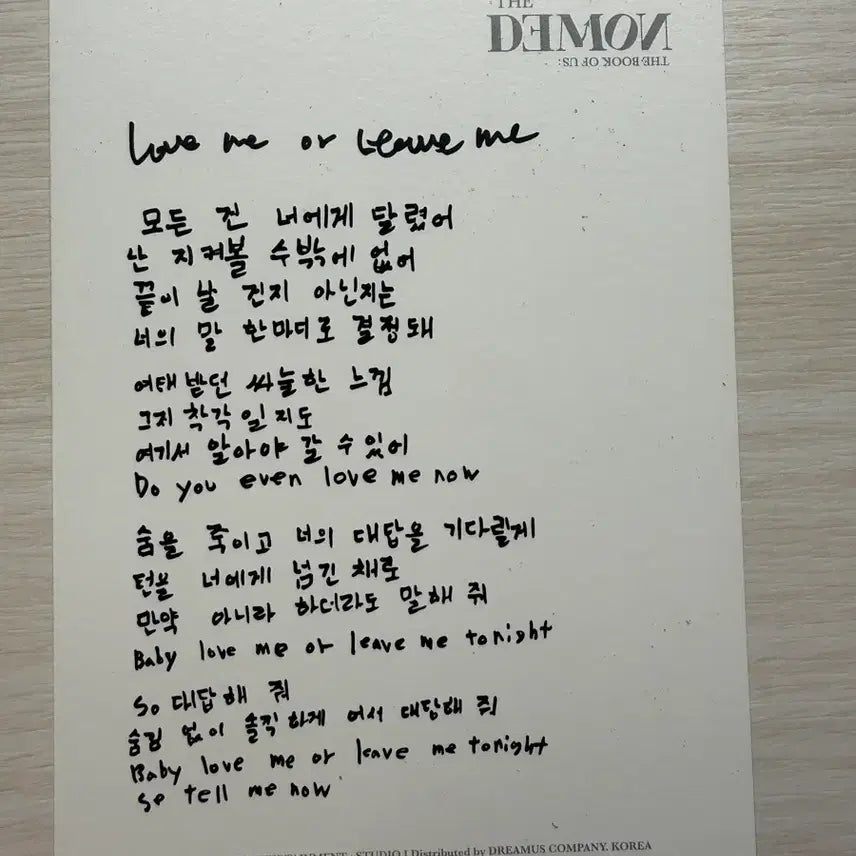 THE
DEMON
THE BOOK OF US:
Love me or Leave me
모든 건 너에게 달렸어
난 지켜볼 수밖에 없어
끝이 날 건지 아닌지는
너의 말 한마디로 결정돼
여태 받던 싸늘한 느낌
그지 착각일지도
여기서 알아야 갈 수 있어
Do you even love me now
숨을 죽이고 너의 대답을 기다릴게
턴을 너에게 넘긴 채로
만약 아니라 하더라도 말해 줘
Baby love me or leave me tonight
So 대답해 줘
숨김 없이 솔직하게 어서 대답해 줘
Baby love me or leave me tonight
so tell me now
STUDIO J Distributed by DREAMUS COMPANY. KOREA